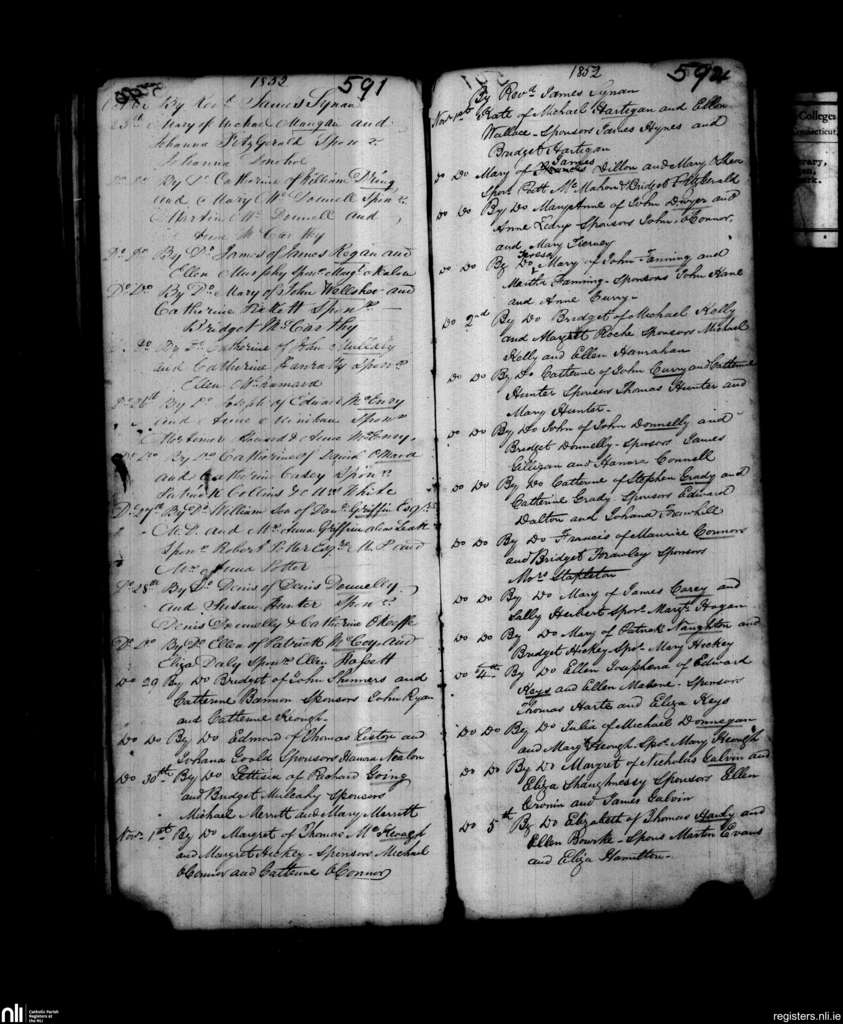 1852 591
By Revd. James Synan
25th Mary of Michael Mangan and
Johanna FitzGerald Spon rs
Johanna Donohoe
By Do. Catherine of William Dring
and Mary Mc Donnell Spon rs
Martin Mc Donnell and
Ann Mc Carthy
Do. Do. By Do. James of James Hogan and
Ellen Murphy Spon. Margt.
Do. Do. By Do. Mary of John and
Catherine Spon rs
Bridget McCarthy
Do. By Do. Catherine of John Mullaly
and Catherine Hanratty Spon rs
Ellen
Do. 26th By Do. Joseph of Edward McEnroy
and Anne Spon rs
and Anne McEnroy
Do. By Do. Catherine of David OMeara
and Catherine Casey Spon rs
Patrick Collins & White
Do. 27th By Do. William Son of Danl. Griffin Esqr.
M.D. and Mrs. Anna Griffin alias Leake
Spon rs Robert Potter Esqr. M.P. and
Mrs. Anna Potter
Do. 28th By Do. Denis of Denis Donnelly
and Susan Hunter Spon rs
Denis Donnelly & Catherine OKeeffe
Do. Do. By Do. Ellen of Patrick McCoy and
Eliza Daly Spon rs Ellen Hassett
Do 29 By Do Bridget of John Skinners and
Catherine Bannon Sponsors John Ryan
and Catherine Keough-
Do Do By Do Edmond of Thomas Liston and
Johana Goold Sponsors Hanora Nealon
Do 30th By Do Lettisia of Richard Going
and Bridget Mulcahy Sponsors
Michael Merritt and Mary Merritt
Novr. 1st By Do Margret of Thomas Mc Keough
and Margret Hickey - Sponsors Michael
OConnor and Catherine OConnor
1852 592
By Revd. James Synan
Novr. 1st Kate of Michael Hartigan and Ellen
Wallace - Sponsors James Hynes and
Bridget Hartigan
James
Do Do Mary of Dillon and Mary OShea
Spon Patt Mc Mahon & Bridget FitzGerald
Do Do By Do Mary Anne of John Dwyer and
Anne Leahy Sponsors John OConnor,
and Mary Tierney
Teresa
Do Do By Do Mary of John Fanning and
Martha Fanning - Sponsors John Hare
and Anne Curry-
Do 2nd By Do Bridget of Michael Kelly
and Margret Roche Sponsors Michael
Kelly and Ellen Hanrahan
Do Do By Do Catherine of John Curry and Catherine
Hunter Sponsors Thomas Hunter and
Mary Hunter-
Do Do By Do John of John Donnelly and
Bridget Donnelly - Sponsors James
Gilligan and Hanora Connell
Do Do By Do Catherine of Stephen Grady and
Catherine Grady Sponsors Edward
Dalton and Johana Frawhill
Do Do By Do Francis of Maurice Connors
and Bridget Frawley Sponsors
Mors. Stapleton
Do Do By Do Mary of James Carey and
Sally Herbert Spors. Mart. Hogan
Do Do By Do Mary of Patrick Naughton and
Bridget Hickey Spor. Mary Hickey
Do 4th By Do Ellen Josephena of Edward
Keys and Ellen Mahone - Sponsors
Thomas Harte and Eliza Keys
Do Do By Do Julia of Michael Donnegan
and Mary Keough Spor. Mary Keough
Do Do By Do Margret of Nicholas Galvin and
Eliza Shaughnessy Sponsors Ellen
Cronin and James Galvin
Do 5th By Do Elizabeth of Thomas Hanly and
Ellen Bourke - Spons Martin Evans
and Eliza Hamilton-
Colleges
Connecticut,
nli
Catholic Parish
Registers at
the NLI
registers.nli.ie